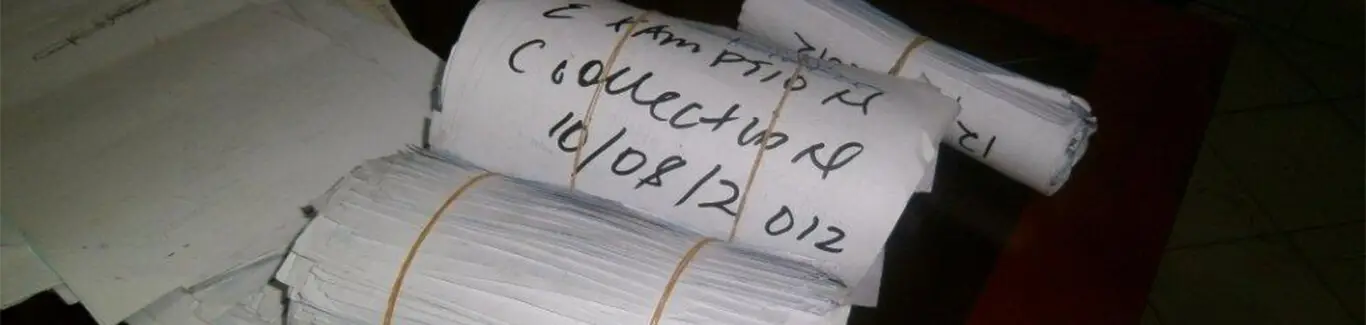 EXAMPSION
Collection
10/08/2012